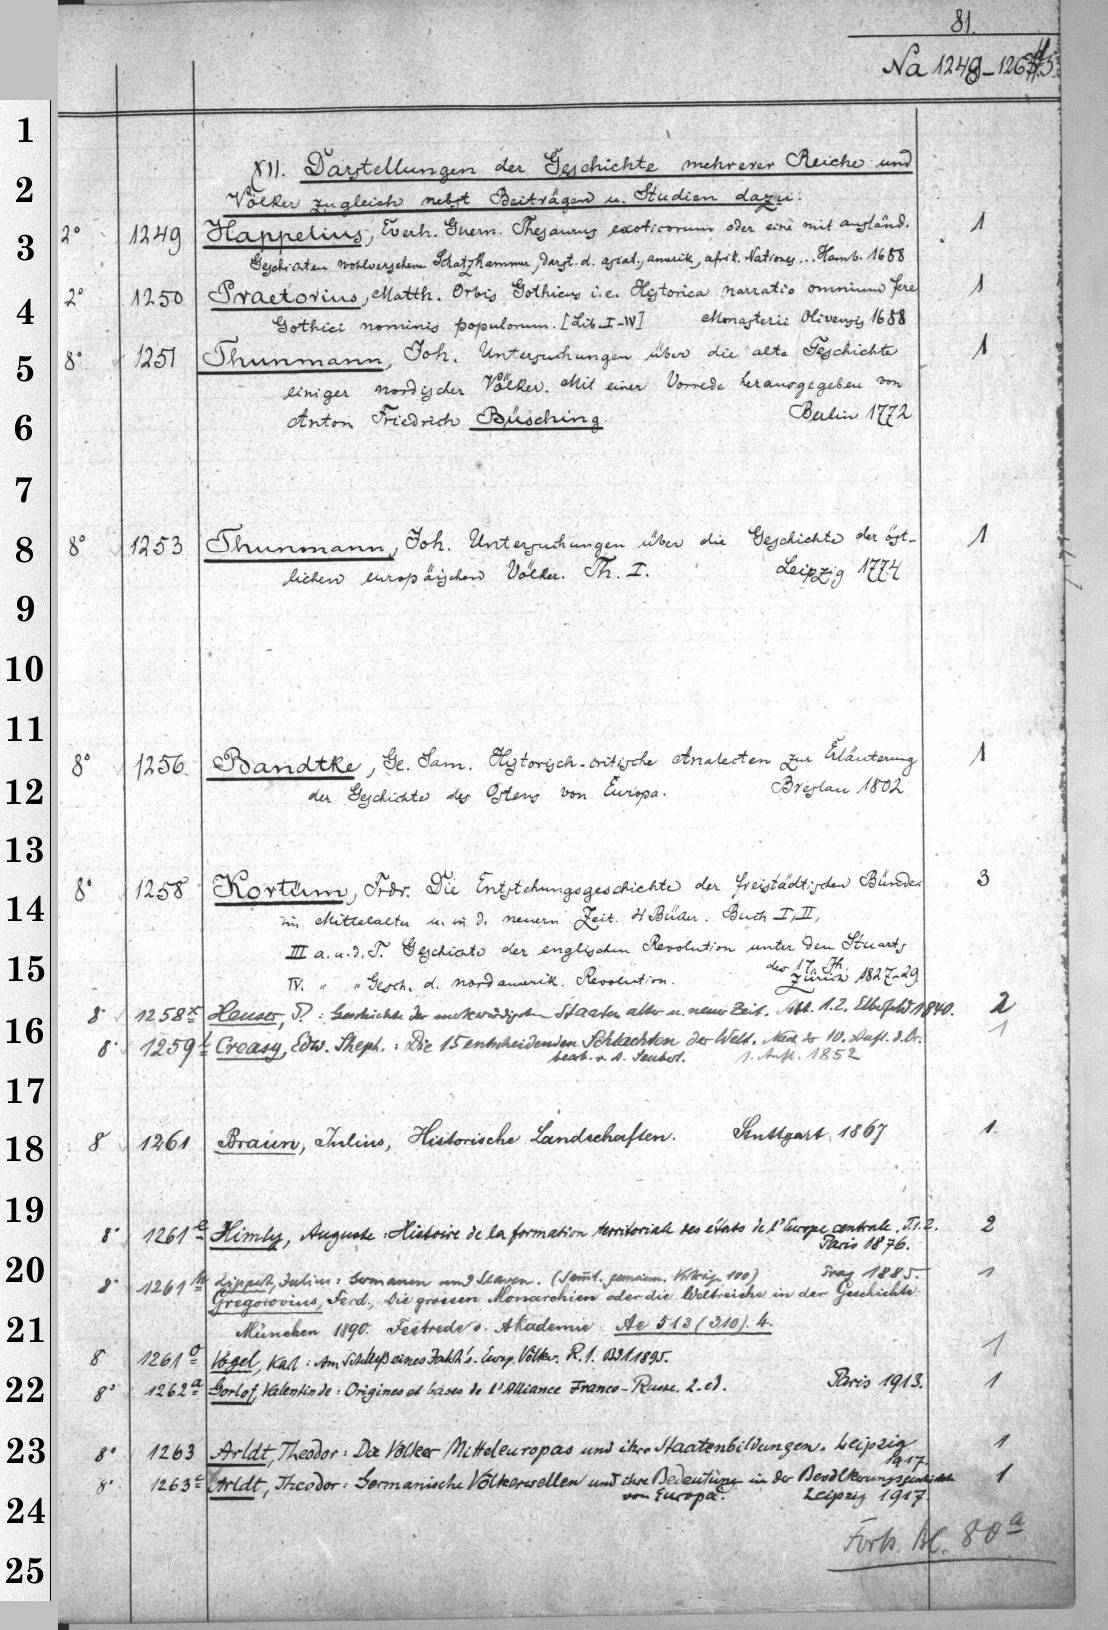 81.
Na 1249-1265
1
2
3
4
5
6
7
8
9
10
11
12
13
14
15
16
17
18
19
20
21
22
23
24
25
XII. Darstellungen der Geschichte mehrerer Reiche und
Völker zugleich nebst Beiträgen u. Studien dazu.
2° 1249 Happelius, Everh. Guern. Thesaurus exoticorum oder eine mit ausländ. 1
Geschichten wohlversehene Schatzkammer, darst. d. asiat., amerik., afrik. Nationes... Hamb. 1688
2° 1250 Praetorius, Matth. Orbis Gothicus i.e. Historica narratio omnium fere 1
Gothici nominis populorum. [Lib. I-IV] Monasterii Olivensis 1688
8° 1251 Thunmann, Joh. Untersuchungen über die alte Geschichte 1
einiger nordischer Völker. Mit einer Vorrede herausgegeben von
Anton Friedrich Büsching. Berlin 1772
8° 1253 Thunmann, Joh. Untersuchungen über die Geschichte der öst- 1
lichen europäischen Völker. Th. I. Leipzig 1774
8° 1256 Bandtke, Ge. Sam. Historisch-critische Analecten zur Erläuterung 1
der Geschichte des Ostens von Europa. Breslau 1802
8° 1258 Kortüm, Frdr. Die Entstehungsgeschichte der freistädtischen Bünde 3
im Mittelalter u. in d. neuern Zeit. 4 Bücher. Buch I, II,
III a.u.d.T. Geschichte der englischen Revolution unter den Stuarts
des 17. Jh.
IV. " " Gesch. d. nordamerik. Revolution. Zürich 1827-29
8 1258x Heuser, P.: Geschichte der merkwürdigsten Staaten alter u. neuer Zeit. Abt. 1.2. Elberfeld 1840. 2
8° 1259 Creasy, Edw. Sheph.: Die 15 entscheidenden Schlachten der Welt. Nach der 10. Aufl. d. Or. 1
bearb. v. A. Seubert. 1. Aufl. 1852
8 1261 Braun, Julius, Historische Landschaften. Stuttgart 1867 1.
8° 1261e Himly, Auguste: Histoire de la formation territoriale des états de l'Europe centrale. T.1.2. 2
Paris 1876.
8° 1261h Lippert, Julius: Germanen und Slaven. (Samml. gemeinn. Vorträge 100) Prag 1885. 1
Gregorovius, Ferd., Die grossen Monarchien oder die Weltreiche in der Geschichte
München 1890. Festrede d. Akademie Ae 513 (310). 4.
8 1261o Vogel, Karl: Am Schluß eines Jahrh's. Europ. Völker. R.1. Bd 1 1895. 1
8° 1262a Gorlof, Valentin de: Origines et bases de l'Alliance Franco-Russe. 2. ed. Paris 1913. 1
8° 1263 Arldt, Theodor: Die Völker Mitteleuropas und ihre Staatenbildungen. Leipzig 1
1917.
8° 1263c Arldt, Theodor: Germanische Völkerwellen und ihre Bedeutung in der Bevölkerungsgeschichte 1
von Europa. Leipzig 1917.
Forts. Bl. 80a